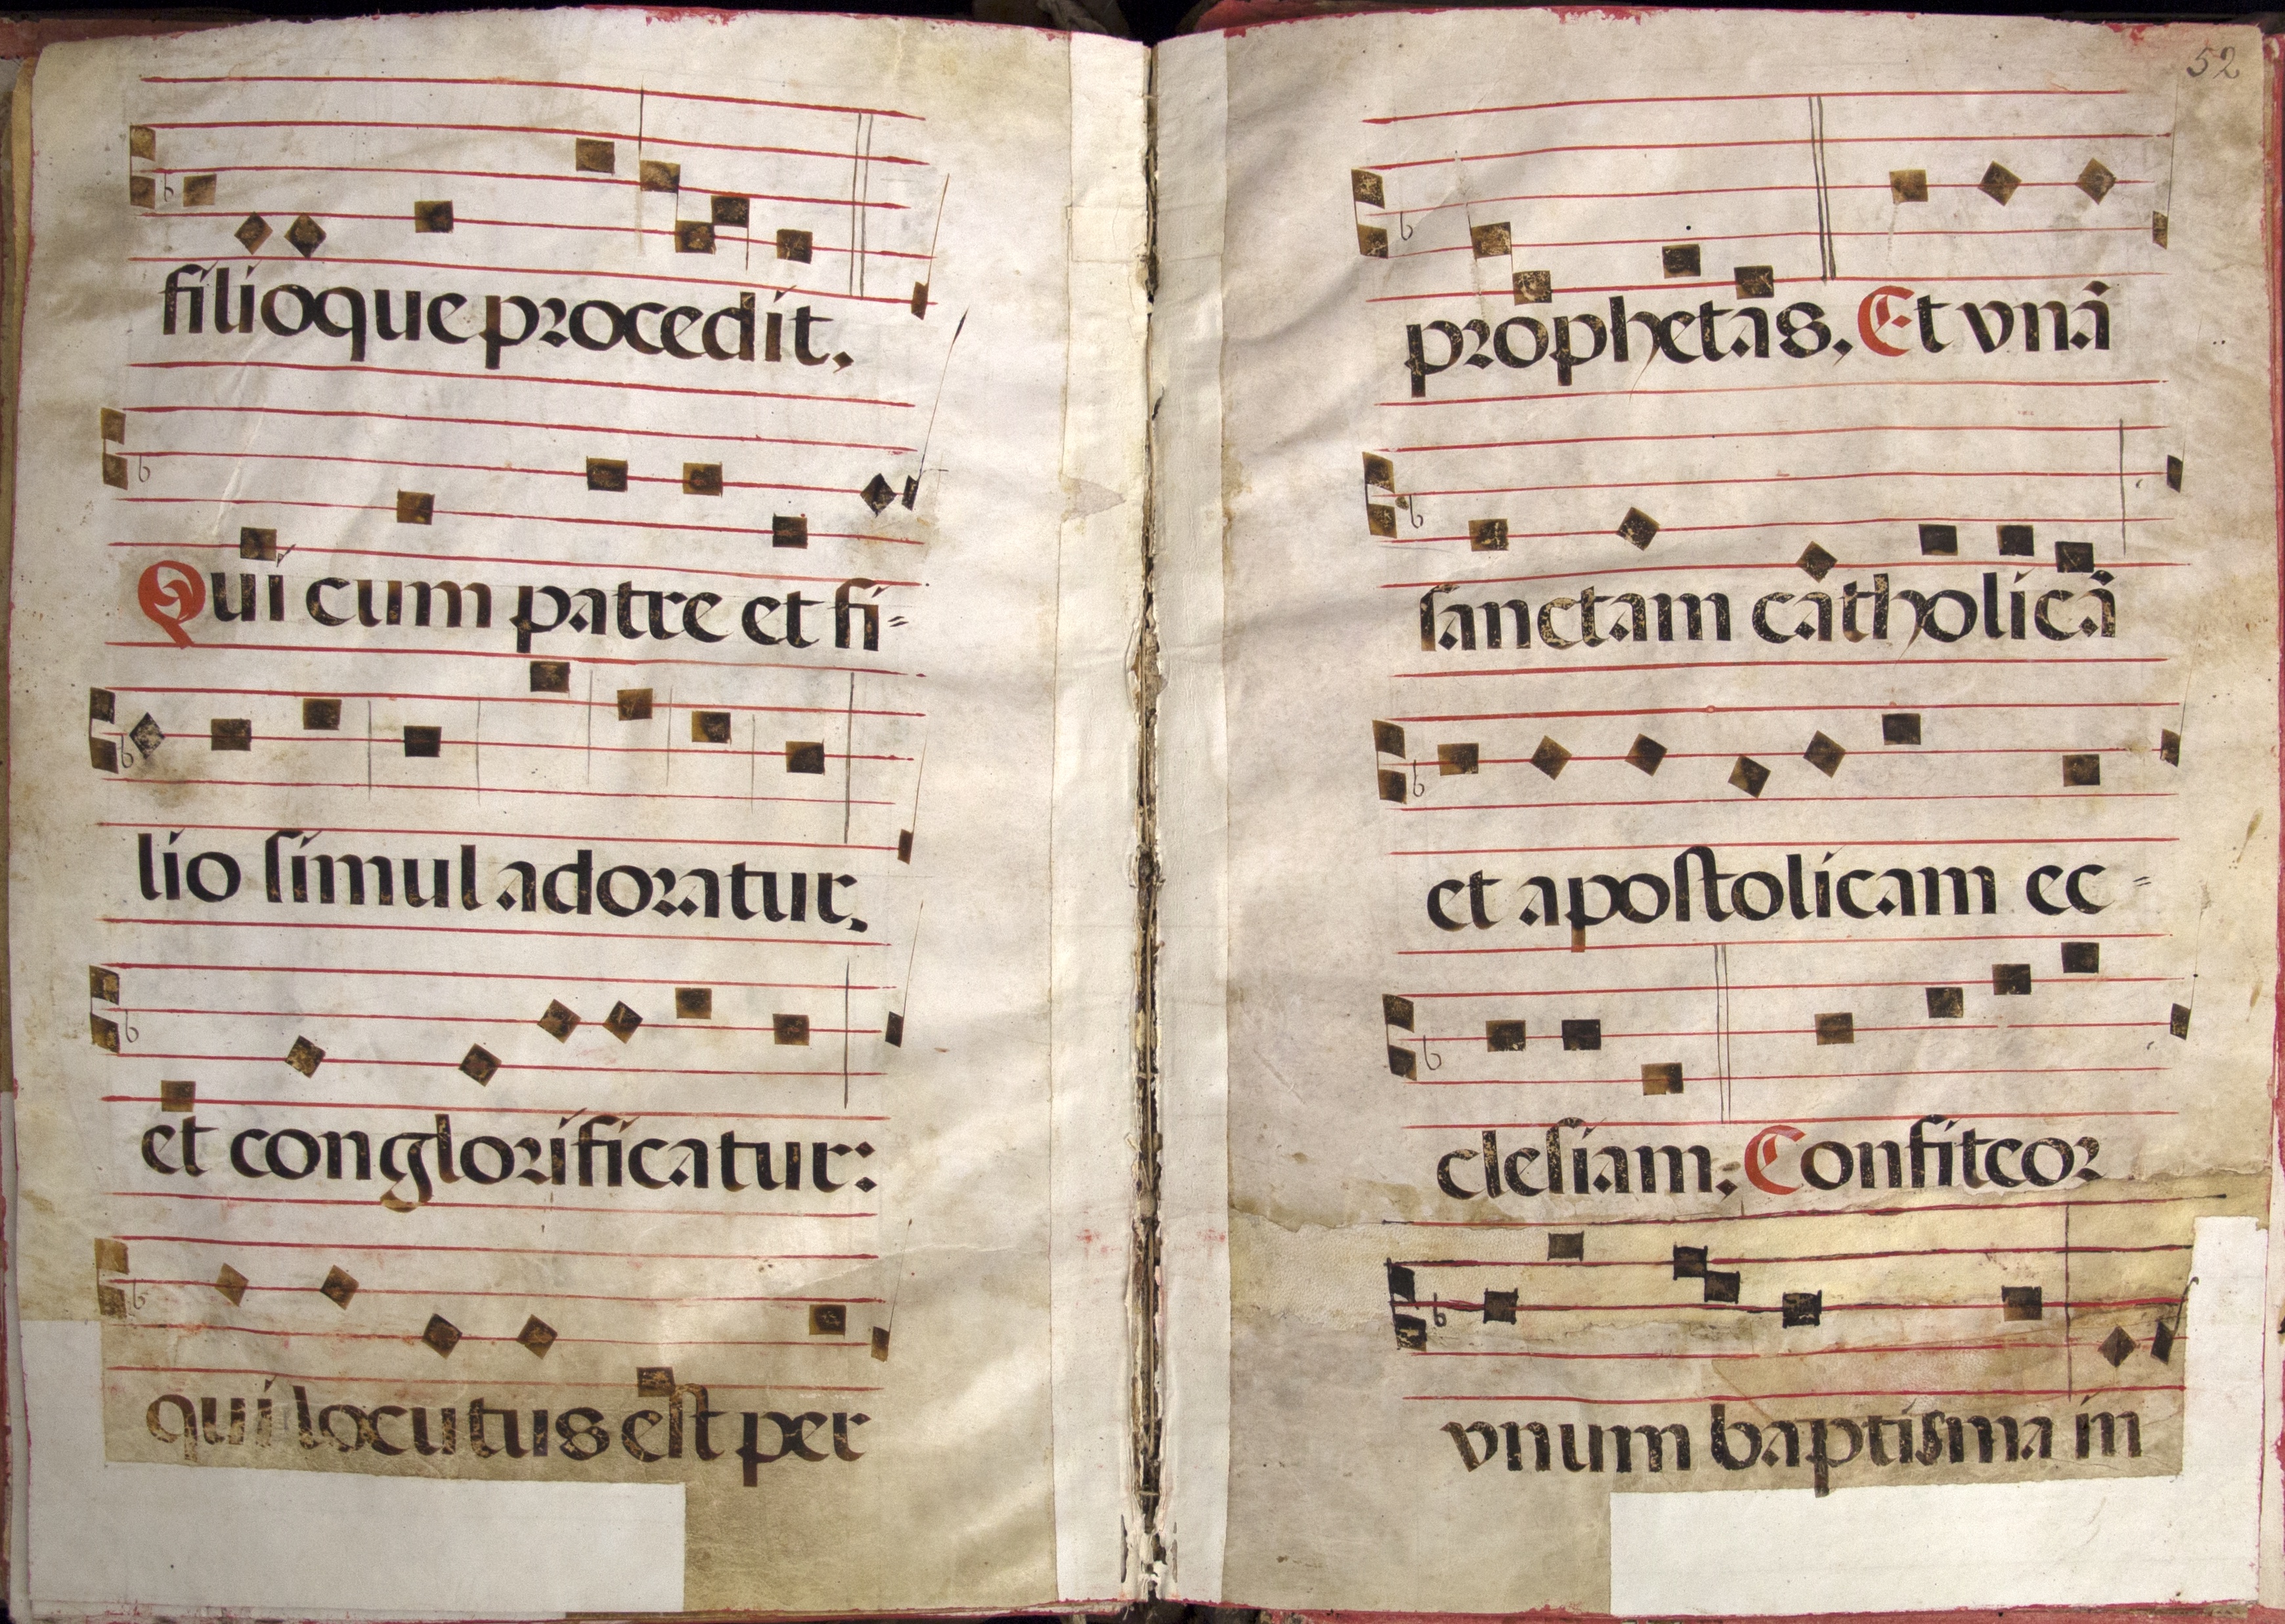 filioque procedit.
Qui cum patre et fi-
lio simul adoratur.
et conglorificatur:
qui locutus est per
52
prophetas. Et vnā
sanctam catholicā
et apostolicam ec-
clesiam: Confiteor
vnum baptisma in